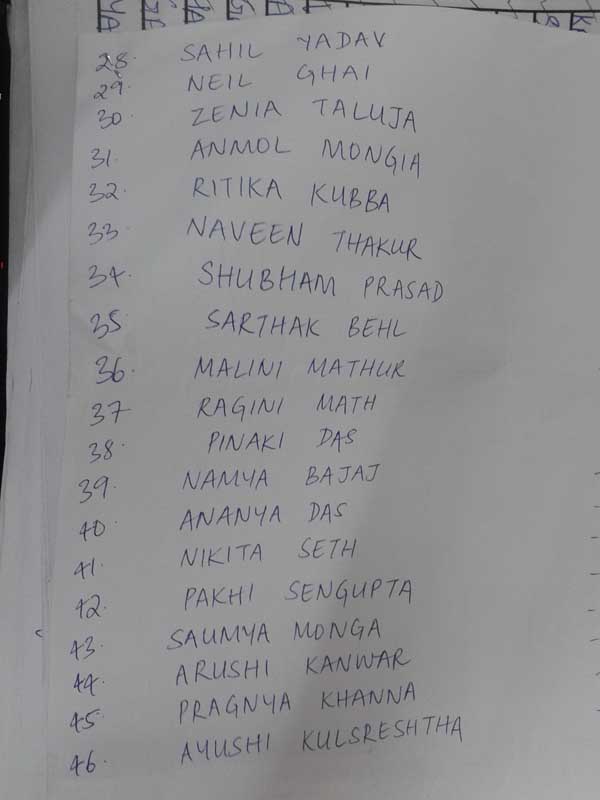 28. SAHIL YADAV
29. NEIL GHAI
30. ZENIA TALUJA
31. ANMOL MONGIA
32. RITIKA KUBBA
33. NAVEEN THAKUR
34. SHUBHAM PRASAD
35 SARTHAK BEHL
36. MALINI MATHUR
37 RAGINI MATH
38. PINAKI DAS
39. NAMYA BAJAJ
40. ANANYA DAS
41. NIKITA SETH
42. PAKHI SENGUPTA
43. SAUMYA MONGA
44. ARUSHI KANWAR
45. PRAGNYA KHANNA
46. AYUSHI KULSRESHTHA